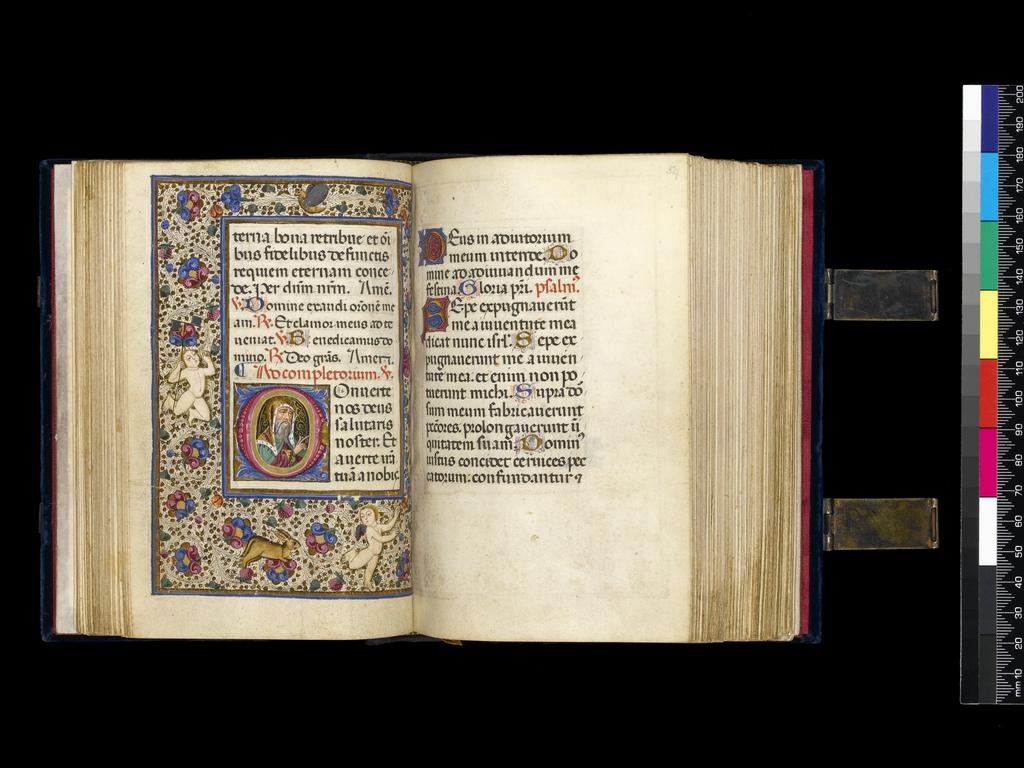 terna bona retribue et oī
bus fidelibus defunctis
requiem eternam conce
de. Per dn̄m nr̄m. Amē.
℣. Domine exaudi orōnē me
am. ℟. Et clamor meus ad te
veniat. ℣. Benedicamus do
mino. ℟. Deo grās. Amen.
Ad completorium. ℣.
Onuerte
nos deus
salutaris
noster. Et
auerte irā
tuā a nobis
59
Deus in adiutorium
meum intende. Do
mine ad adiuuandum me
festina. Gloria pr̄i. psalm̄.
Sepe expugnauerunt
me a iuuentute mea
dicat nunc isrl. Sepe ex
pugnauerunt me a iuuen
tute mea. et enim non po
tuerunt michi. Supra do
sum meum fabricauerunt
pctōres. prolongauerunt ī
quitatem suam. Domin
iustus concidet ceruices pec
catorum: confundantur
mm 10 20 30 40 50 60 70 80 90 100 110 120 130 140 150 160 170 180 190 200